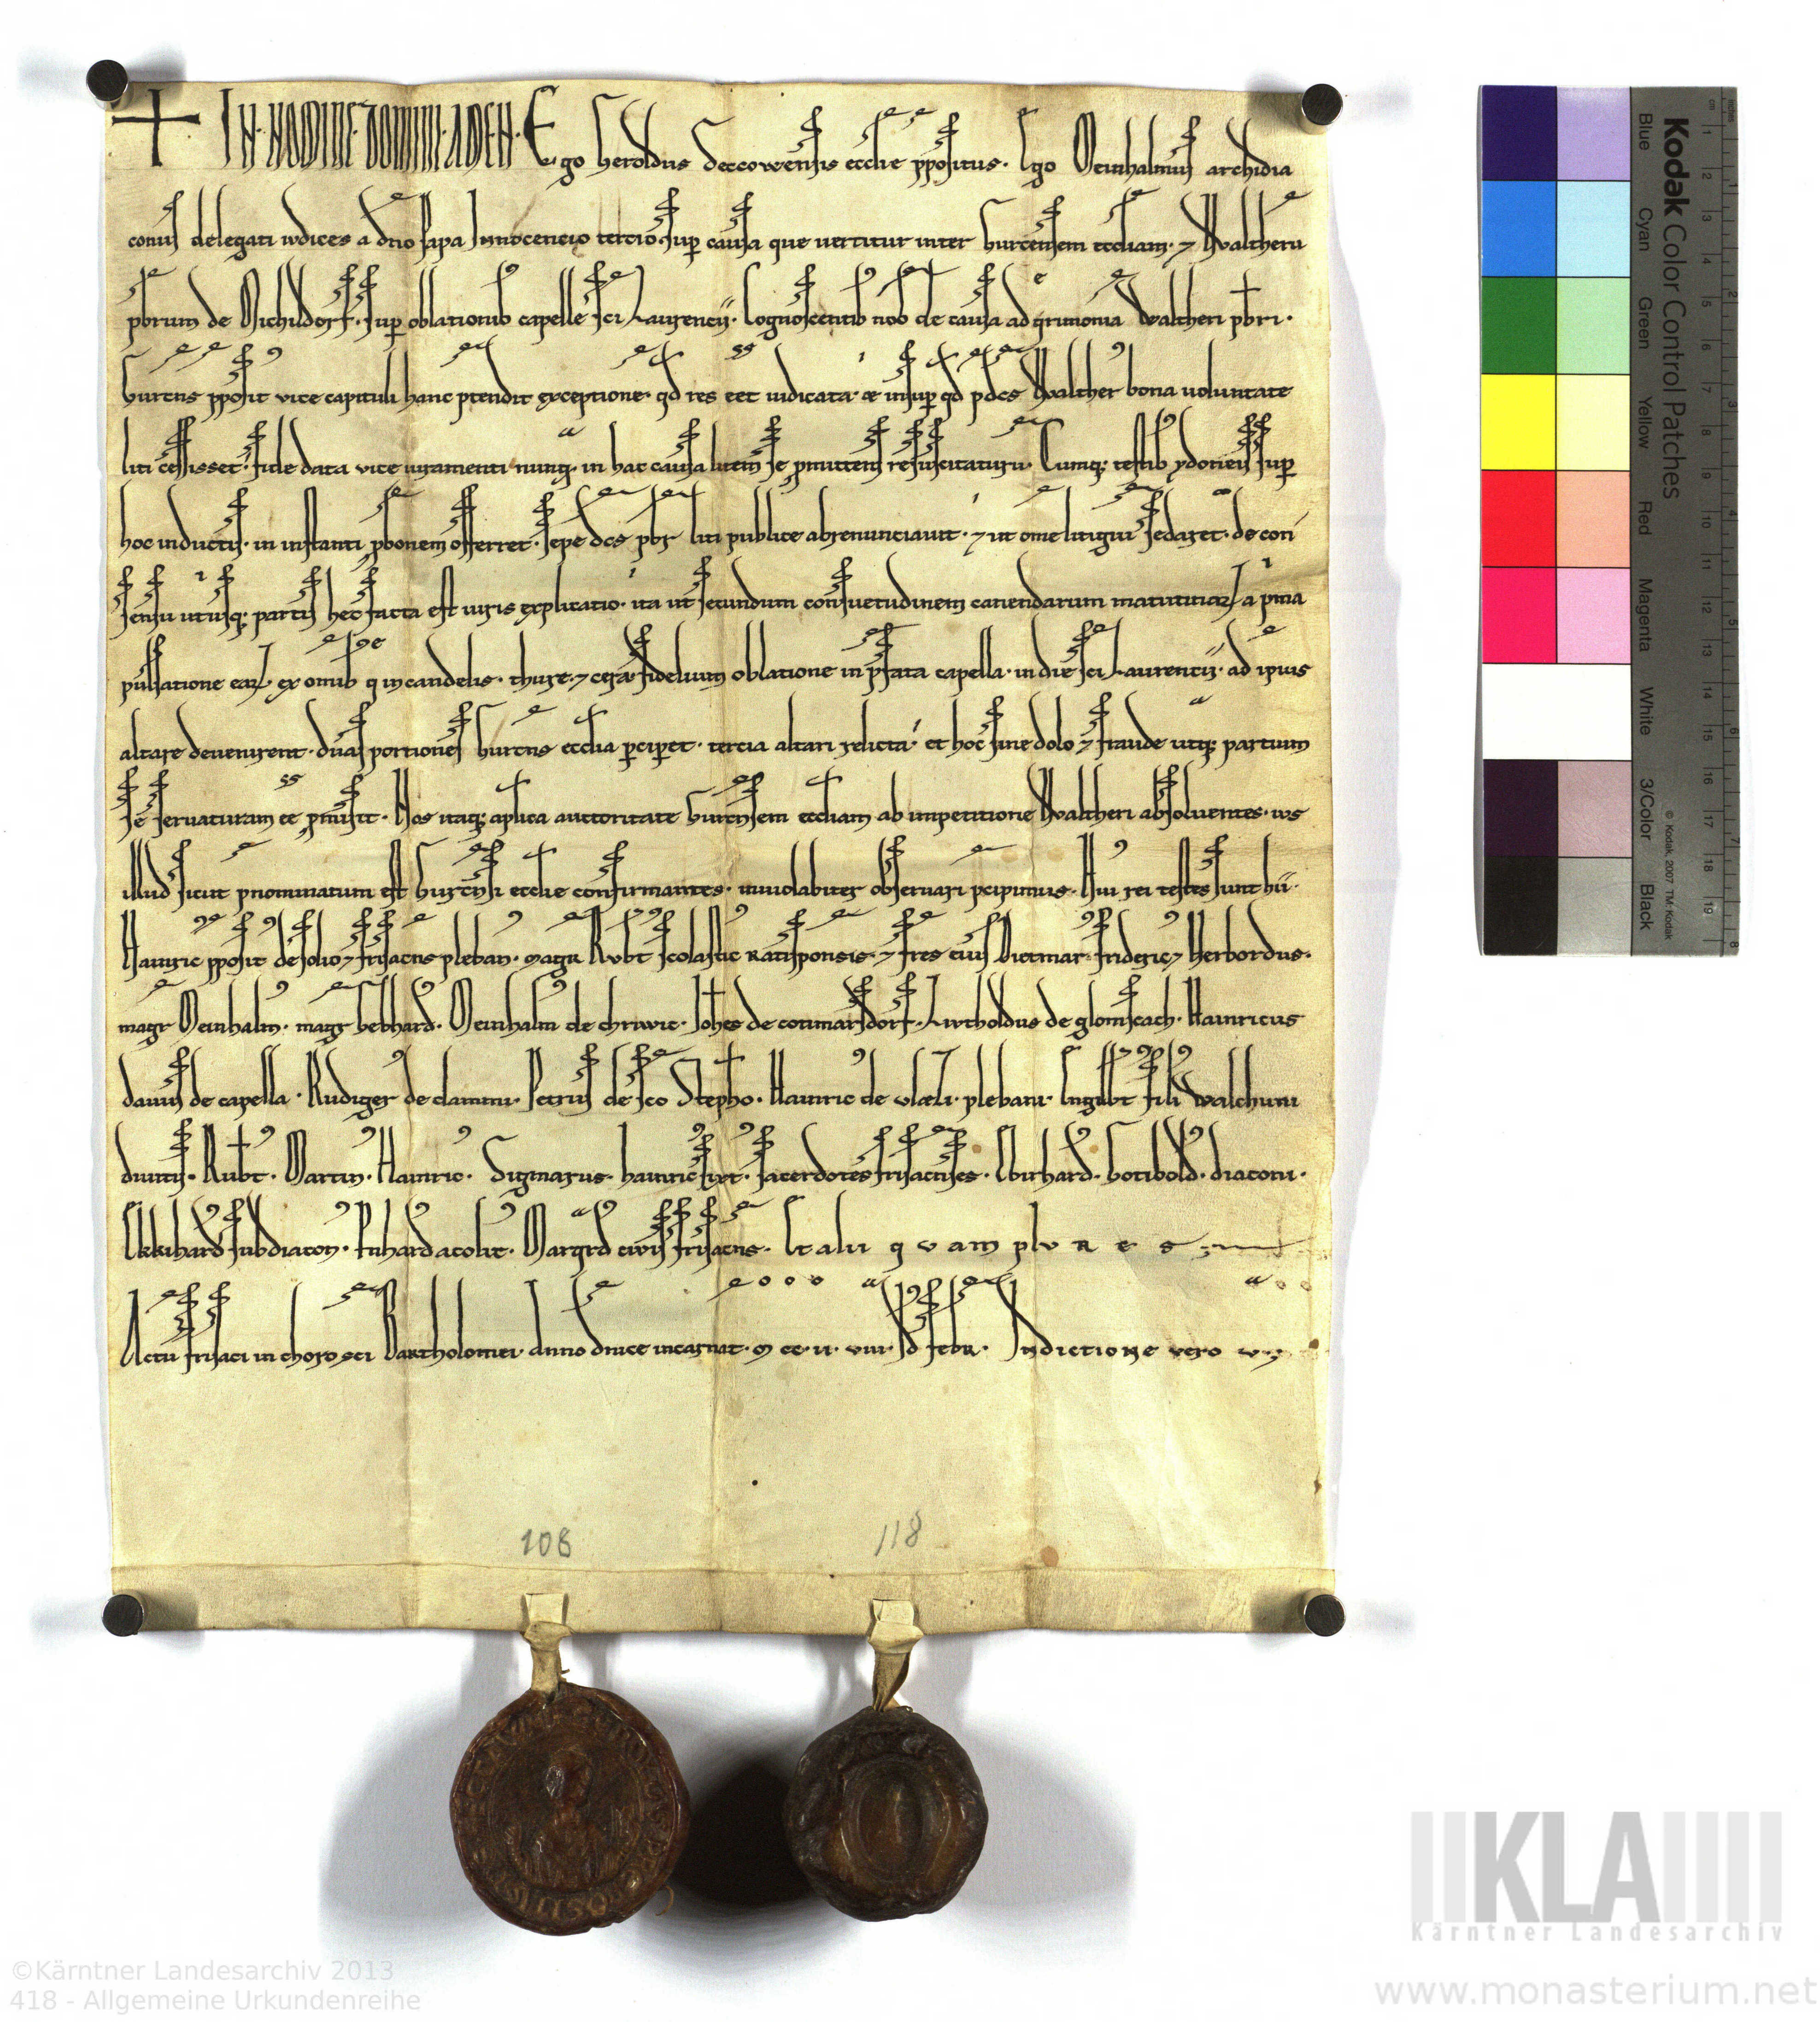 IN NOMINE DOMINI AMEN. Ego heroldus Seccowensis ecclie ppositus. Ego Meinhalmus archidia
conus delegati iudices a dno papa Innocencio tercio. sup causa que uertitur inter Gurcensem eccliam. ⁊ Waltheru
pbrum de Michildorf. sup oblationib capelle sci Laurencij. Cognoscentib nob de causa ad qrimonia Waltheri pbri.
Gurcens pposit vice capituli hanc ptendit exceptione. qd res eet iudicata. & insup qd pdcs Walther bona uoluntate
liti cessisset. fide data vice iuramenti nunq in hac causa litem se pmittens resuscitaturu. Cumq; testib ydoneis sup
hoc inductis. in instanti pbonem offerret. sepe dcs pbr liti publice abrenunciauit. ⁊ ut ome litigiu sedaret. de con
sensu utiusq; partis hec facta est iuris explicatio. ita ut secundum consuetudinem canendarum matutinaꝝ a pma
pulsatione eaꝝ. ex omib q in candelis. thure. ⁊ cera fidelium oblatione in pfata capella. in die sci Laurencij. ad ipius
altare deuenirent. duas portiones Gurcens ecclia pcipet. tercia altari relicta. et hoc sine dolo ⁊ fraude utq; partium
se seruaturam ee pmisit. Nos itaq; aplica auctoritate Gurcnsem eccliam ab impetitione Waltheri absoluentes. ius
illud sicut pnominatum est Gurcensi ecclie confirmantes. inuiolabiter obseruari pcipimus. Hui rei testes sunt hii.
Hainric pposit de solio ⁊ frisacens pleban. magr Rubt scolastic Ratisponsis. ⁊ fres eius Dietmar. frideric ⁊ Herbordus.
magr Meinhalm. magr Gebhard. Meinhalm de chriwic. Johes de cotmarsdorf. Liutholdus de glomscach. Hainricus
dauus de capella. Rudiger de clammi. Petrus de sco Stepho. Hainric de plebani. Engilbt fili Walchuni
diuitis. Rubt. Martin. Hainric. Sigmarus. hainric sacerdotes frisacnses. Ebirhard. Gotibold. diaconi.
Ekkihard subdiacon. acolit. Marqrd ciuis frisacens. Et alii quam plures
Actu frisaci in choro sci Bartholomei. Anno dnice incarnat. M cc. ii. viii. Id febr. Indictione vero v.
108
118
Kodak Color Control Patches
Blue
Cyan
Green
Yellow
Red
Magenta
White
3/Color
Black
© Kodak, 2007 TM: Kodak
KLA
Kärntner Landesarchiv
©Kärntner Landesarchiv 2013
418 - Allgemeine Urkundenreihe
www.monasterium.net